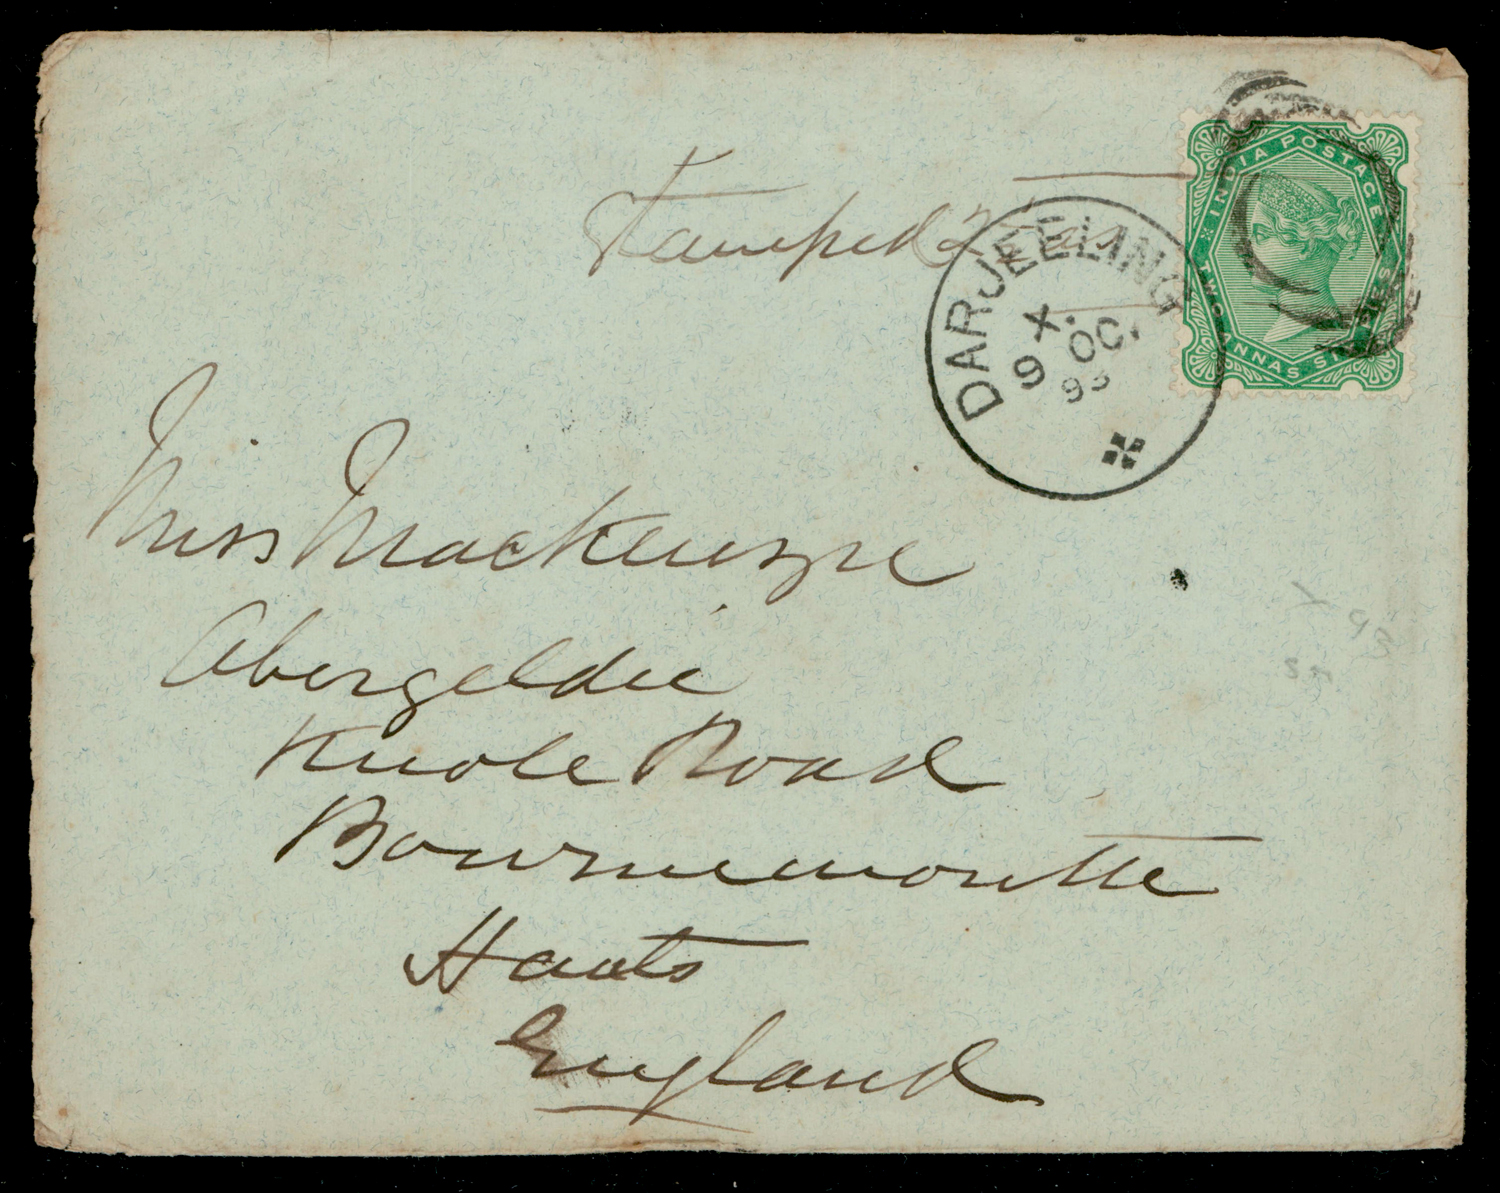 Stamped 2
INDIA POSTAGE
TWO ANNAS SIX PIES
DARJEELING
X.
9 OC.
93
Miss Mackenzie
Abergeldie
Knole Road
Bournemouth
Hants
England